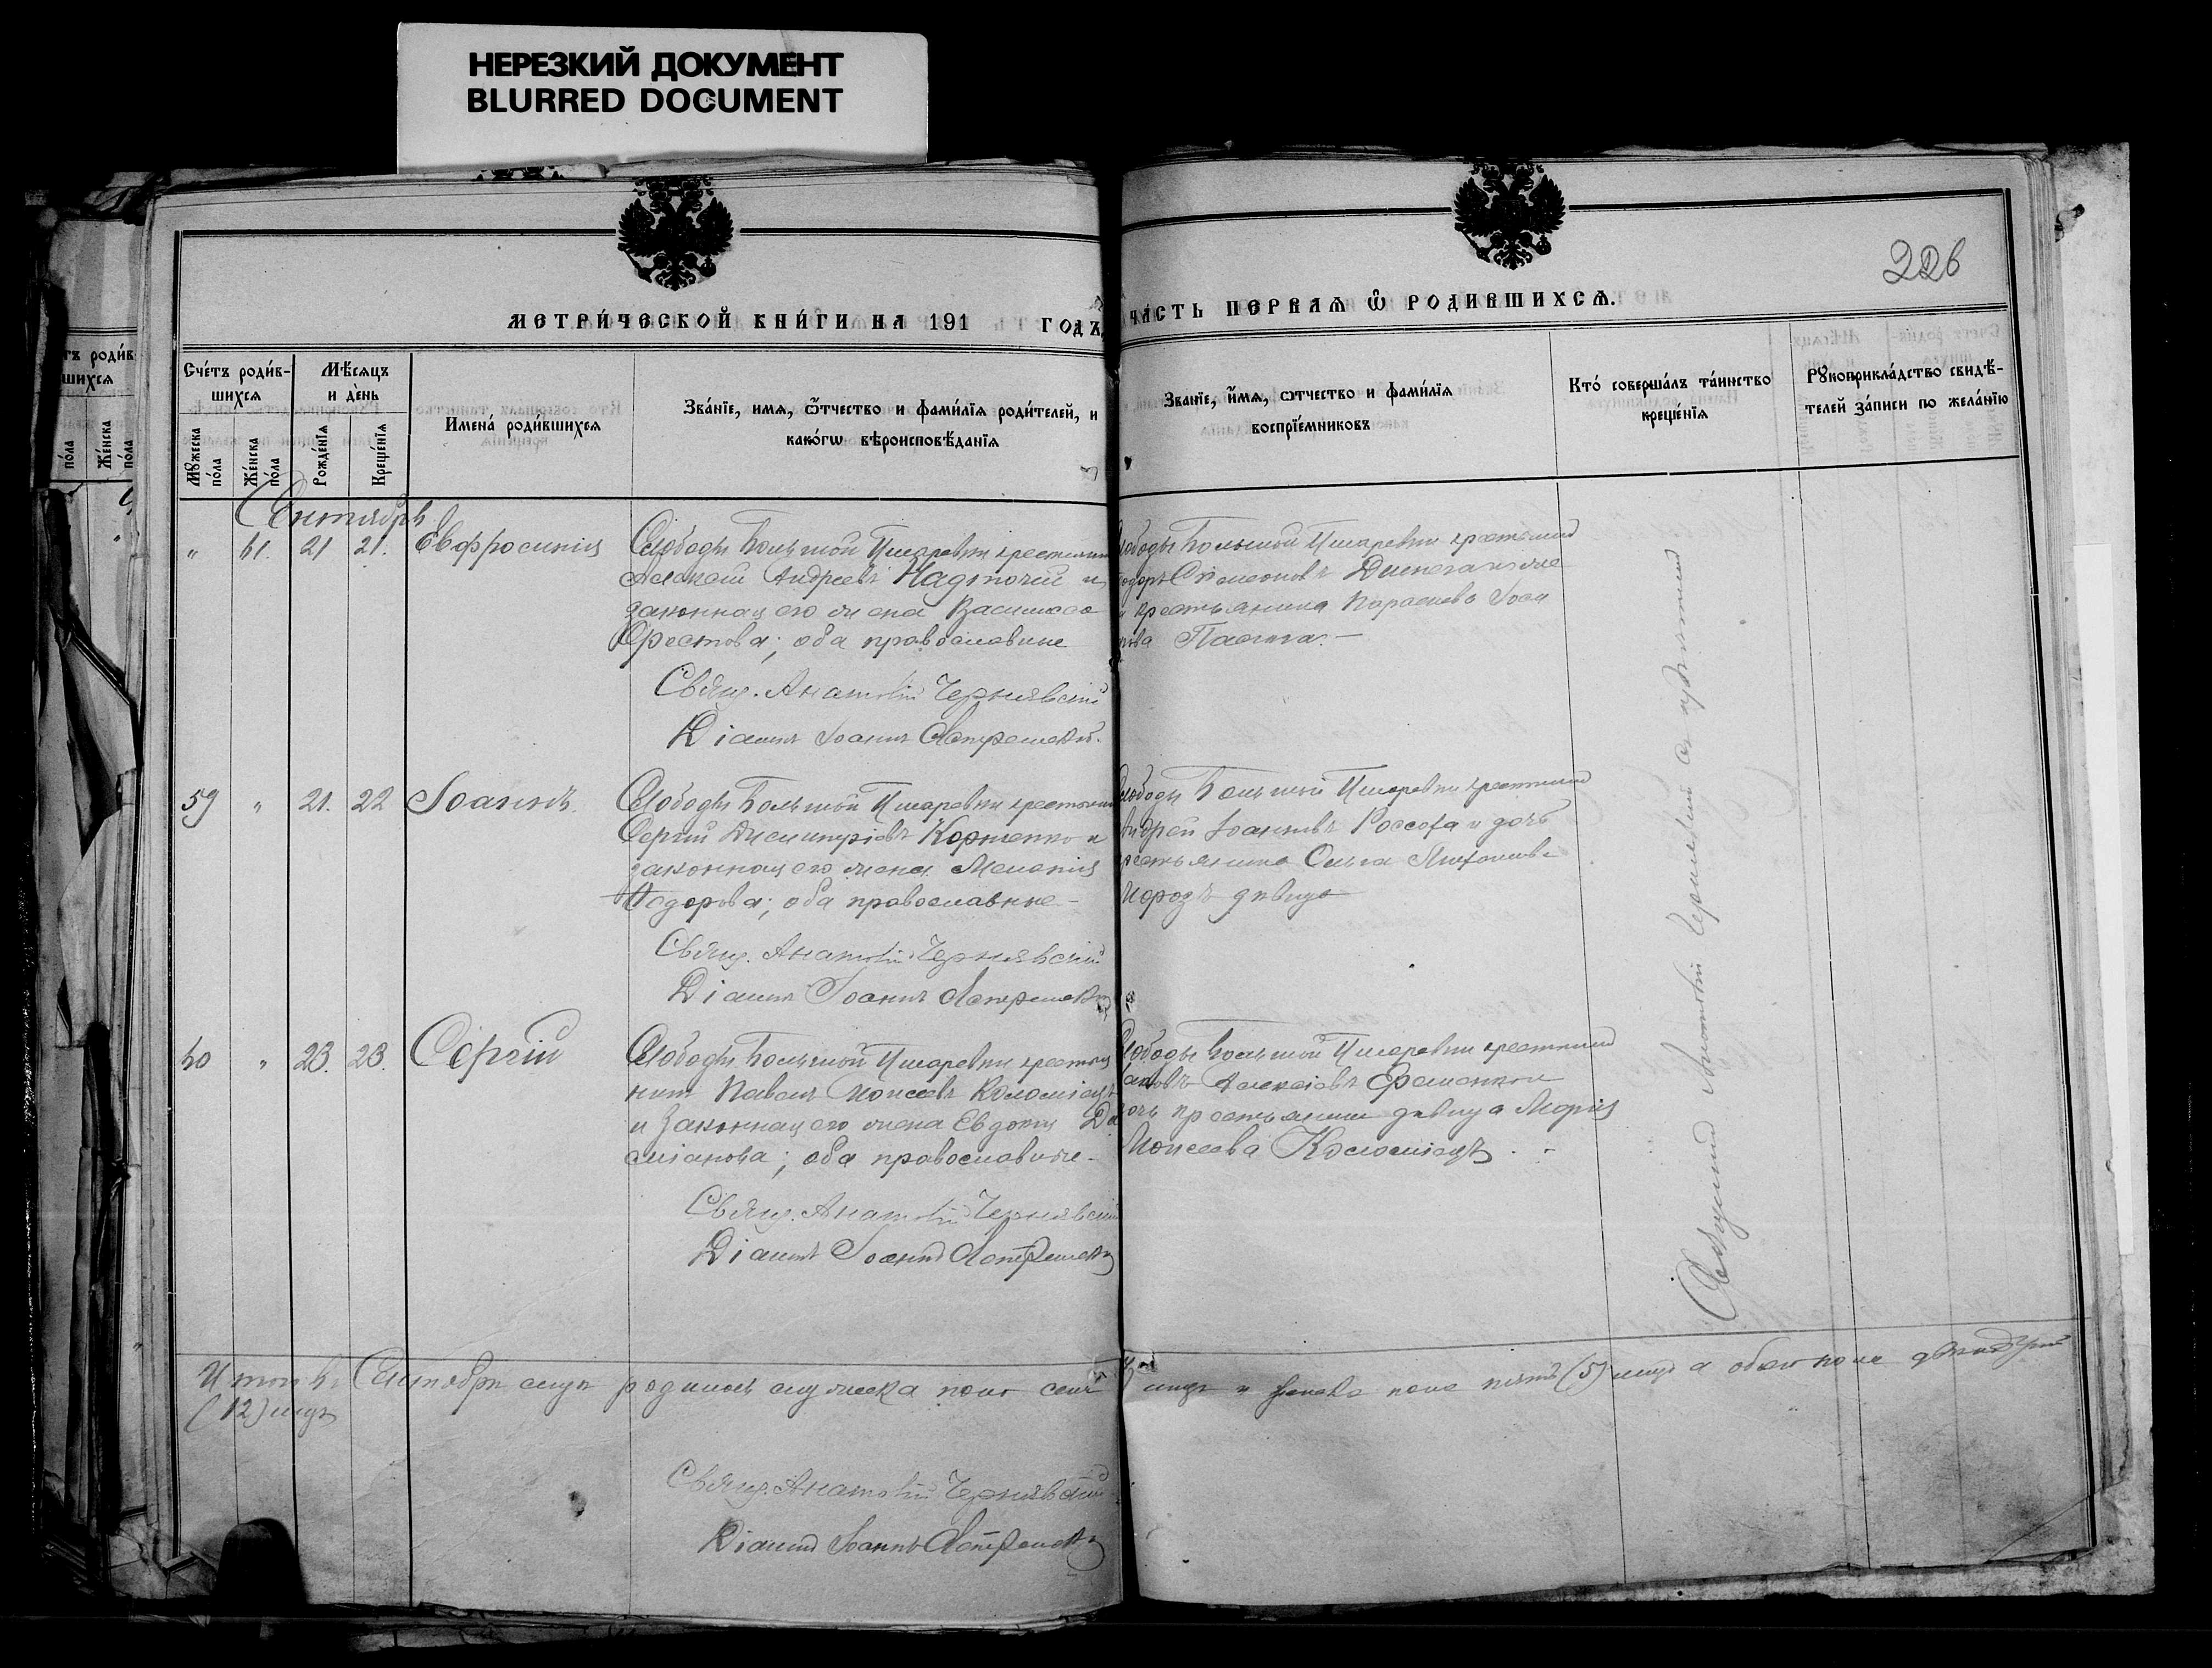 НЕРЕЗКИЙ ДОКУМЕНТ
BLURRED DOCUMENT
МЕТРИ́ЧЕСКОЙ КНИ́ГИ НА 191 ГОДЪ
ЧАСТЬ ПЕРВАЯ Ѽ РОДИВШИХСЯ.
226
Сче́тъ роди́в-
шихся
Мѣсяцъ
и де́нь
Имена̀ роди́вшихся
Зва́нїе, имя, ѻ҆́тчество и фами́лїя роди́телей, и
како́гѡ вѣроисповѣ́данїя
Мꙋжеска по́ла
Же́нска по́ла
Рожде́нїя
Креще́нїя
Зва́нїе, и҆́мя, ѻтчество и фами́лїя
воспрїе́мниковъ
Кто́ соверша́лъ та́инство
креще́нїя
Рꙋкоприкла́дство свидѣ́-
телей за́писи по жела́нїю
Сентябрь
" 61. 21 21. Евфросинія
Слободы Большой Писаревки крестьянин
Алексей Андреевъ Надточий и
законная его жена Василисса
Орестова; оба православные
Свящ. Анатолій Чернявскій
Діаконъ Іоаннъ
Слободы Большой Писаревки крестьянин
Симеоновъ
крестьянина Параскева
Пасюга. —
59 " 21. 22 Іоаннъ.
Слободы Большой Писаревки крестьянин
Сергій Димитріевъ Корженко и
законная его жена Меланія
Ѳеодорова; оба православные —
Свящ. Анатолій Чернявскій
Діаконъ Іоаннъ
Слободы Большой Писаревки крестьянин
Андрей Іоанновъ Россоха и дочь
крестьянина Ольга
Морозъ девица
60 " 23. 23. Сергій
Слободы Большой Писаревки крестья
нинъ Павелъ Моисеевъ Коломіецъ
и законная его жена Евдокія Да
міанова; оба православные —
Свящ. Анатолій Чернявскій
Діаконъ Іоаннъ
Слободы Большой Писаревки крестьянин
Алексіевъ Еременко и
дочь крестьянина девица Марія
Моисеева Коломіецъ. —
Священник Анатолій Чернявскій съ причтомъ
Итого въ Сентябре месяце родилось мужеска пола семь
и женска пола пять (5) а обоего пола двенадцать
(12) лицъ
Свящ. Анатолій Чернявскій
Діаконъ Іоаннъ